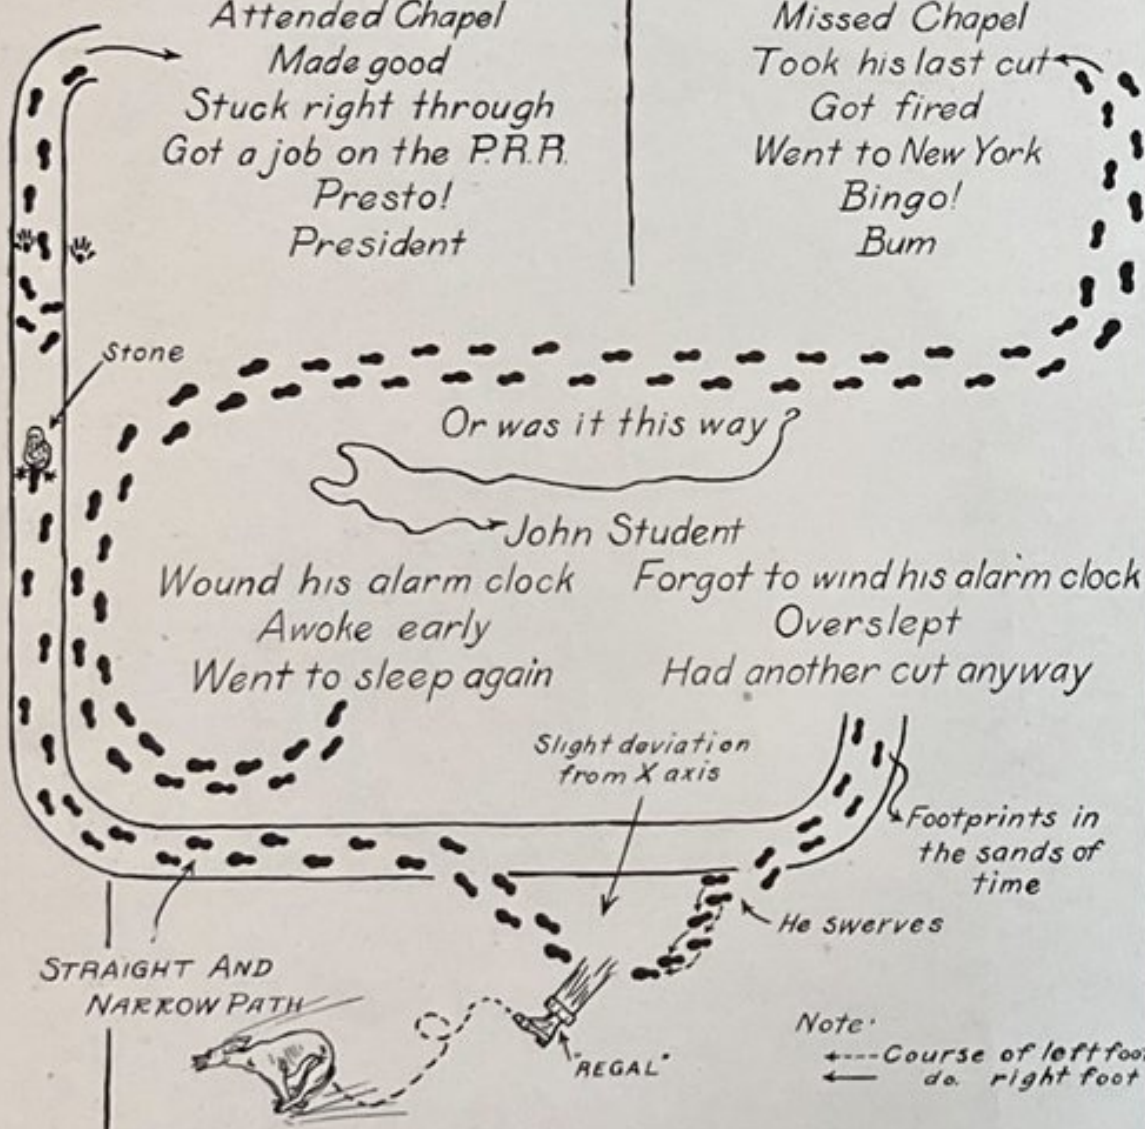 Attended Chapel
Made good
Stuck right through
Got a job on the P.R.R.
Presto!
President
Missed Chapel
Took his last cut
Got fired
Went to New York
Bingo!
Bum
Stone
Or was it this way?
John Student
Wound his alarm clock
Awoke early
Went to sleep again
Forgot to wind his alarm clock
Overslept
Had another cut anyway
Slight deviation
from X axis
Footprints in
the sands of
time
He swerves
STRAIGHT AND
NARROW PATH
"REGAL"
Note.
Course of left foot
do. right foot